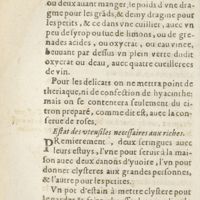 ou deux auant manger, le poids d'vne dra-
gme pour les grãds, & demy dragme pour
les petits, & ce dans vne cuillier, auec vn
peu de syrop ou suc de limons, ou de gre-
nades acides, ou oxycrat, ou eau vinee,
beuuant par dessus vn plein verre dudit
oxycrat ou d'eau, auec quatre cueillerees
de vin.
Pour les delicats on ne mettra point de
theriaque, ni de confection de hyacinthe:
mais on se contentera seulement du ci-
tron preparé, comme dit est, auec la con-
serue de roses.
Estat des vtensiles necessaires aux riches.
PRemierement, deux seringues auec
leurs estuys, l'vne pour seruir à la mai-
son auec deux canons d'yuoire, l'vn pour
donner clysteres aux grandes personnes,
& l'autre pour les petites.
Vn pot d'estain à mettre clystere pour